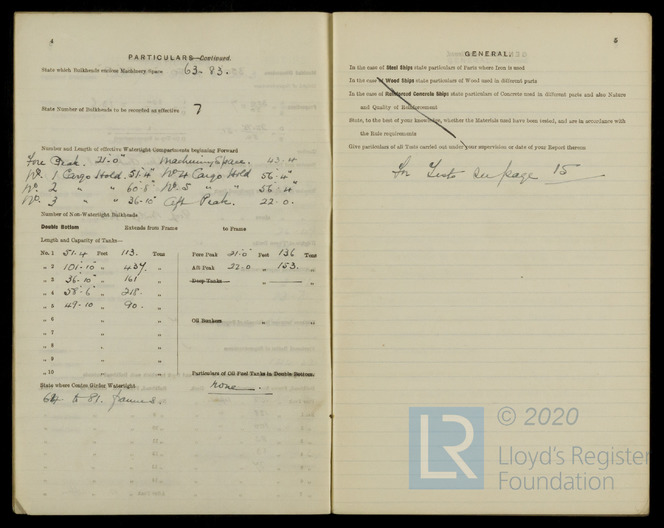 4
PARTICULARS—Continued.
State which Bulkheads enclose Machinery Space 63-83.
State Number of Bulkheads to be recorded as effective 7
Number and Length of effective Watertight Compartments beginning Forward
Fore Peak. 21-0" Machinery Space. 43-4
No. 1 Cargo Hold. 51-4" No. 4 Cargo Hold 56-4"
No. 2 " " 60-8" No. 5 " " 56-4"
No. 3 " " 36-10" Aft Peak. 22-0.
Number of Non-Watertight Bulkheads
Double Bottom Extends from Frame to Frame
Length and Capacity of Tanks—
No. 1 51-4 Feet 113. Tons Fore Peak 21-0" Feet 136 Tons
" 2 101-10" " 437. " Aft Peak 22-0 " 153. "
" 3 36-10" " 161 " Deep Tanks " "
" 4 58-6" " 218. "
" 5 49-10 " 90. "
" 6 " " Oil Bunkers " "
" 7 " "
" 8 " "
" 9 " "
" 10 " " Particulars of Oil Fuel Tanks in Double Bottom.
State where Centre Girder Watertight none.
64 to 81. frames.
5
GENERAL.
In the case of Steel Ships state particulars of Parts where Iron is used
In the case of Wood Ships state particulars of Wood used in different parts
In the case of Reinforced Concrete Ships state particulars of Concrete used in different parts and also Nature
and Quality of Reinforcement
State, to the best of your knowledge, whether the Materials used have been tested, and are in accordance with
the Rule requirements
Give particulars of all Tests carried out under your supervision or date of your Report thereon
For Tests see page 15
© 2020
LR
Lloyd's Register
Foundation